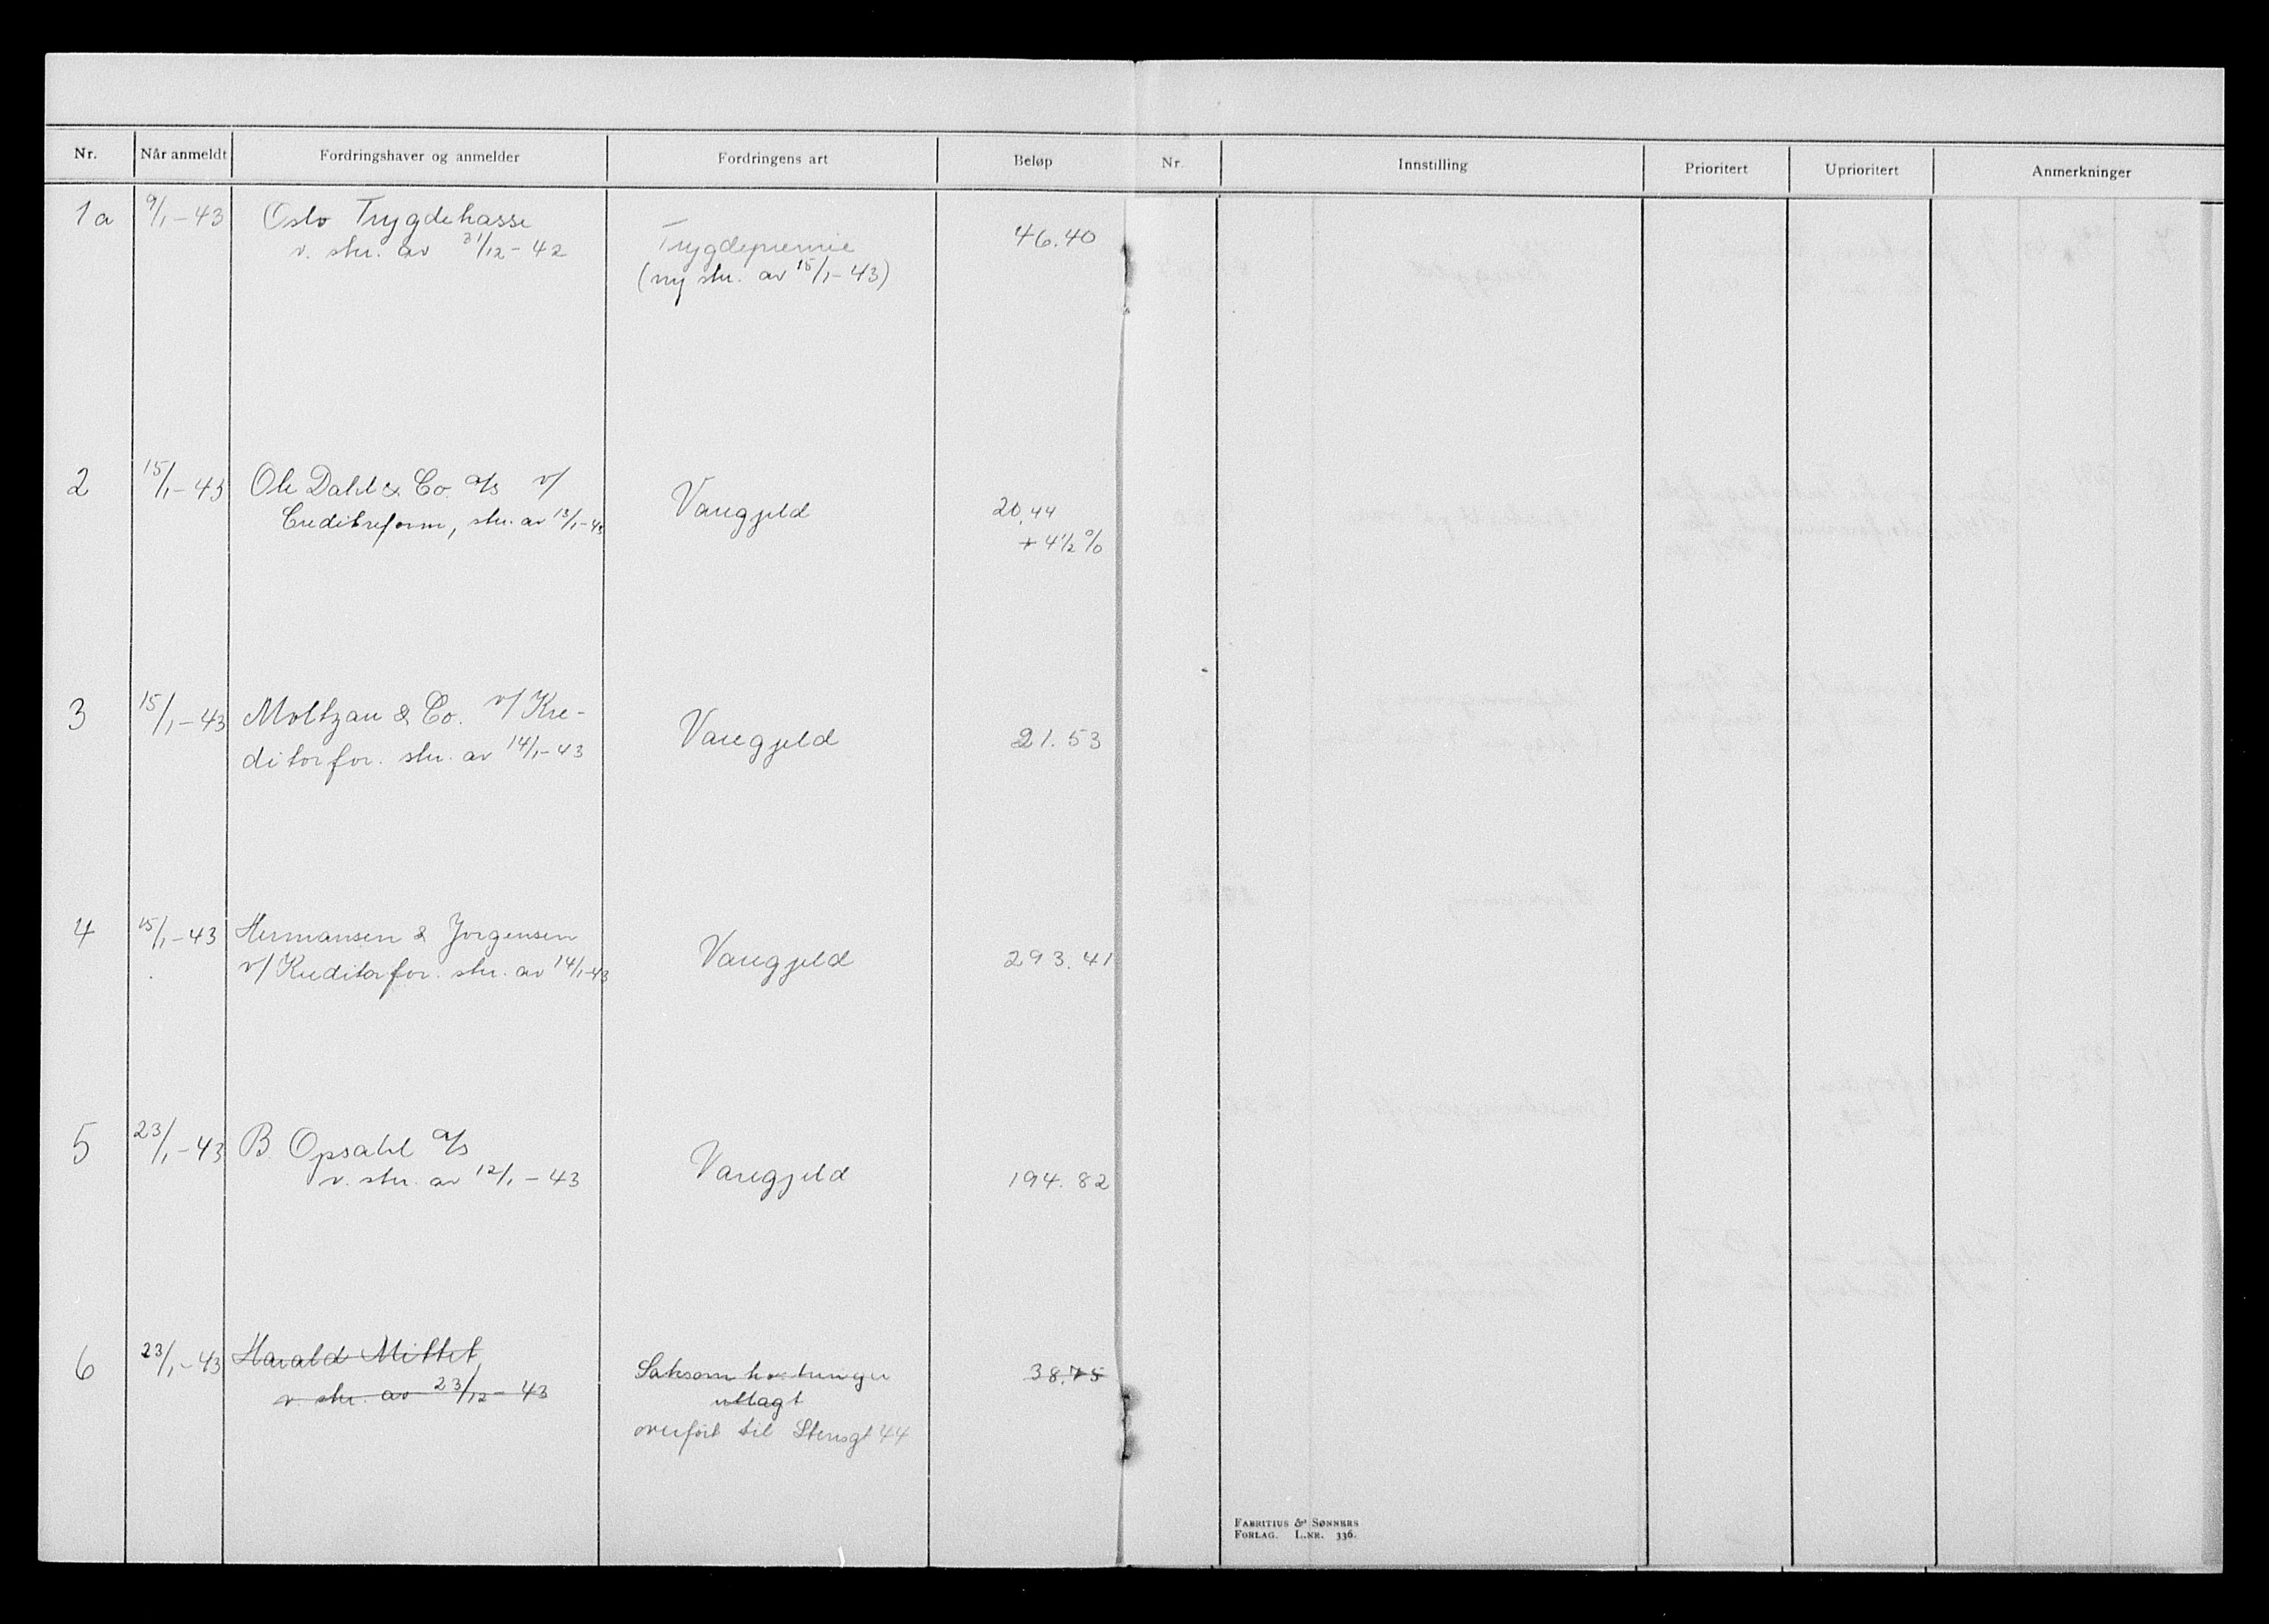 Nr. Når anmeldt Fordringshaver og anmelder Fordringens art Beløp Nr. Innstilling Prioritert Uprioritert Anmerkninger
1a 9/1-43 Oslo Trygdekasse
v. skr. av 31/12-42 Trygdepremie 46.40
(ny skr. av 15/1-43)
2 15/1-43 Ole Dahl & Co. a/s v/
Creditreform, skr. av 13/1-43 Varegjeld 20.44
+ 4 1/2 %
3 15/1-43 Moltzau & Co. v/ Kre-
ditorfor. skr. av 14/1-43 Varegjeld 21.53
4 15/1-43 Hermansen & Jørgensen
v/ Kreditorfor. skr. av 14/1-43 Varegjeld 293.41
5 23/1-43 B. Opsahl a/s
v. skr. av 12/1-43 Varegjeld 194.82
6 23/1-43 Harald Mittet
v. skr. av 23/12-43 38.75
utlagt
overført til Stensgt 44
FABRITIUS & SØNNERS
FORLAG. L.NR. 336.